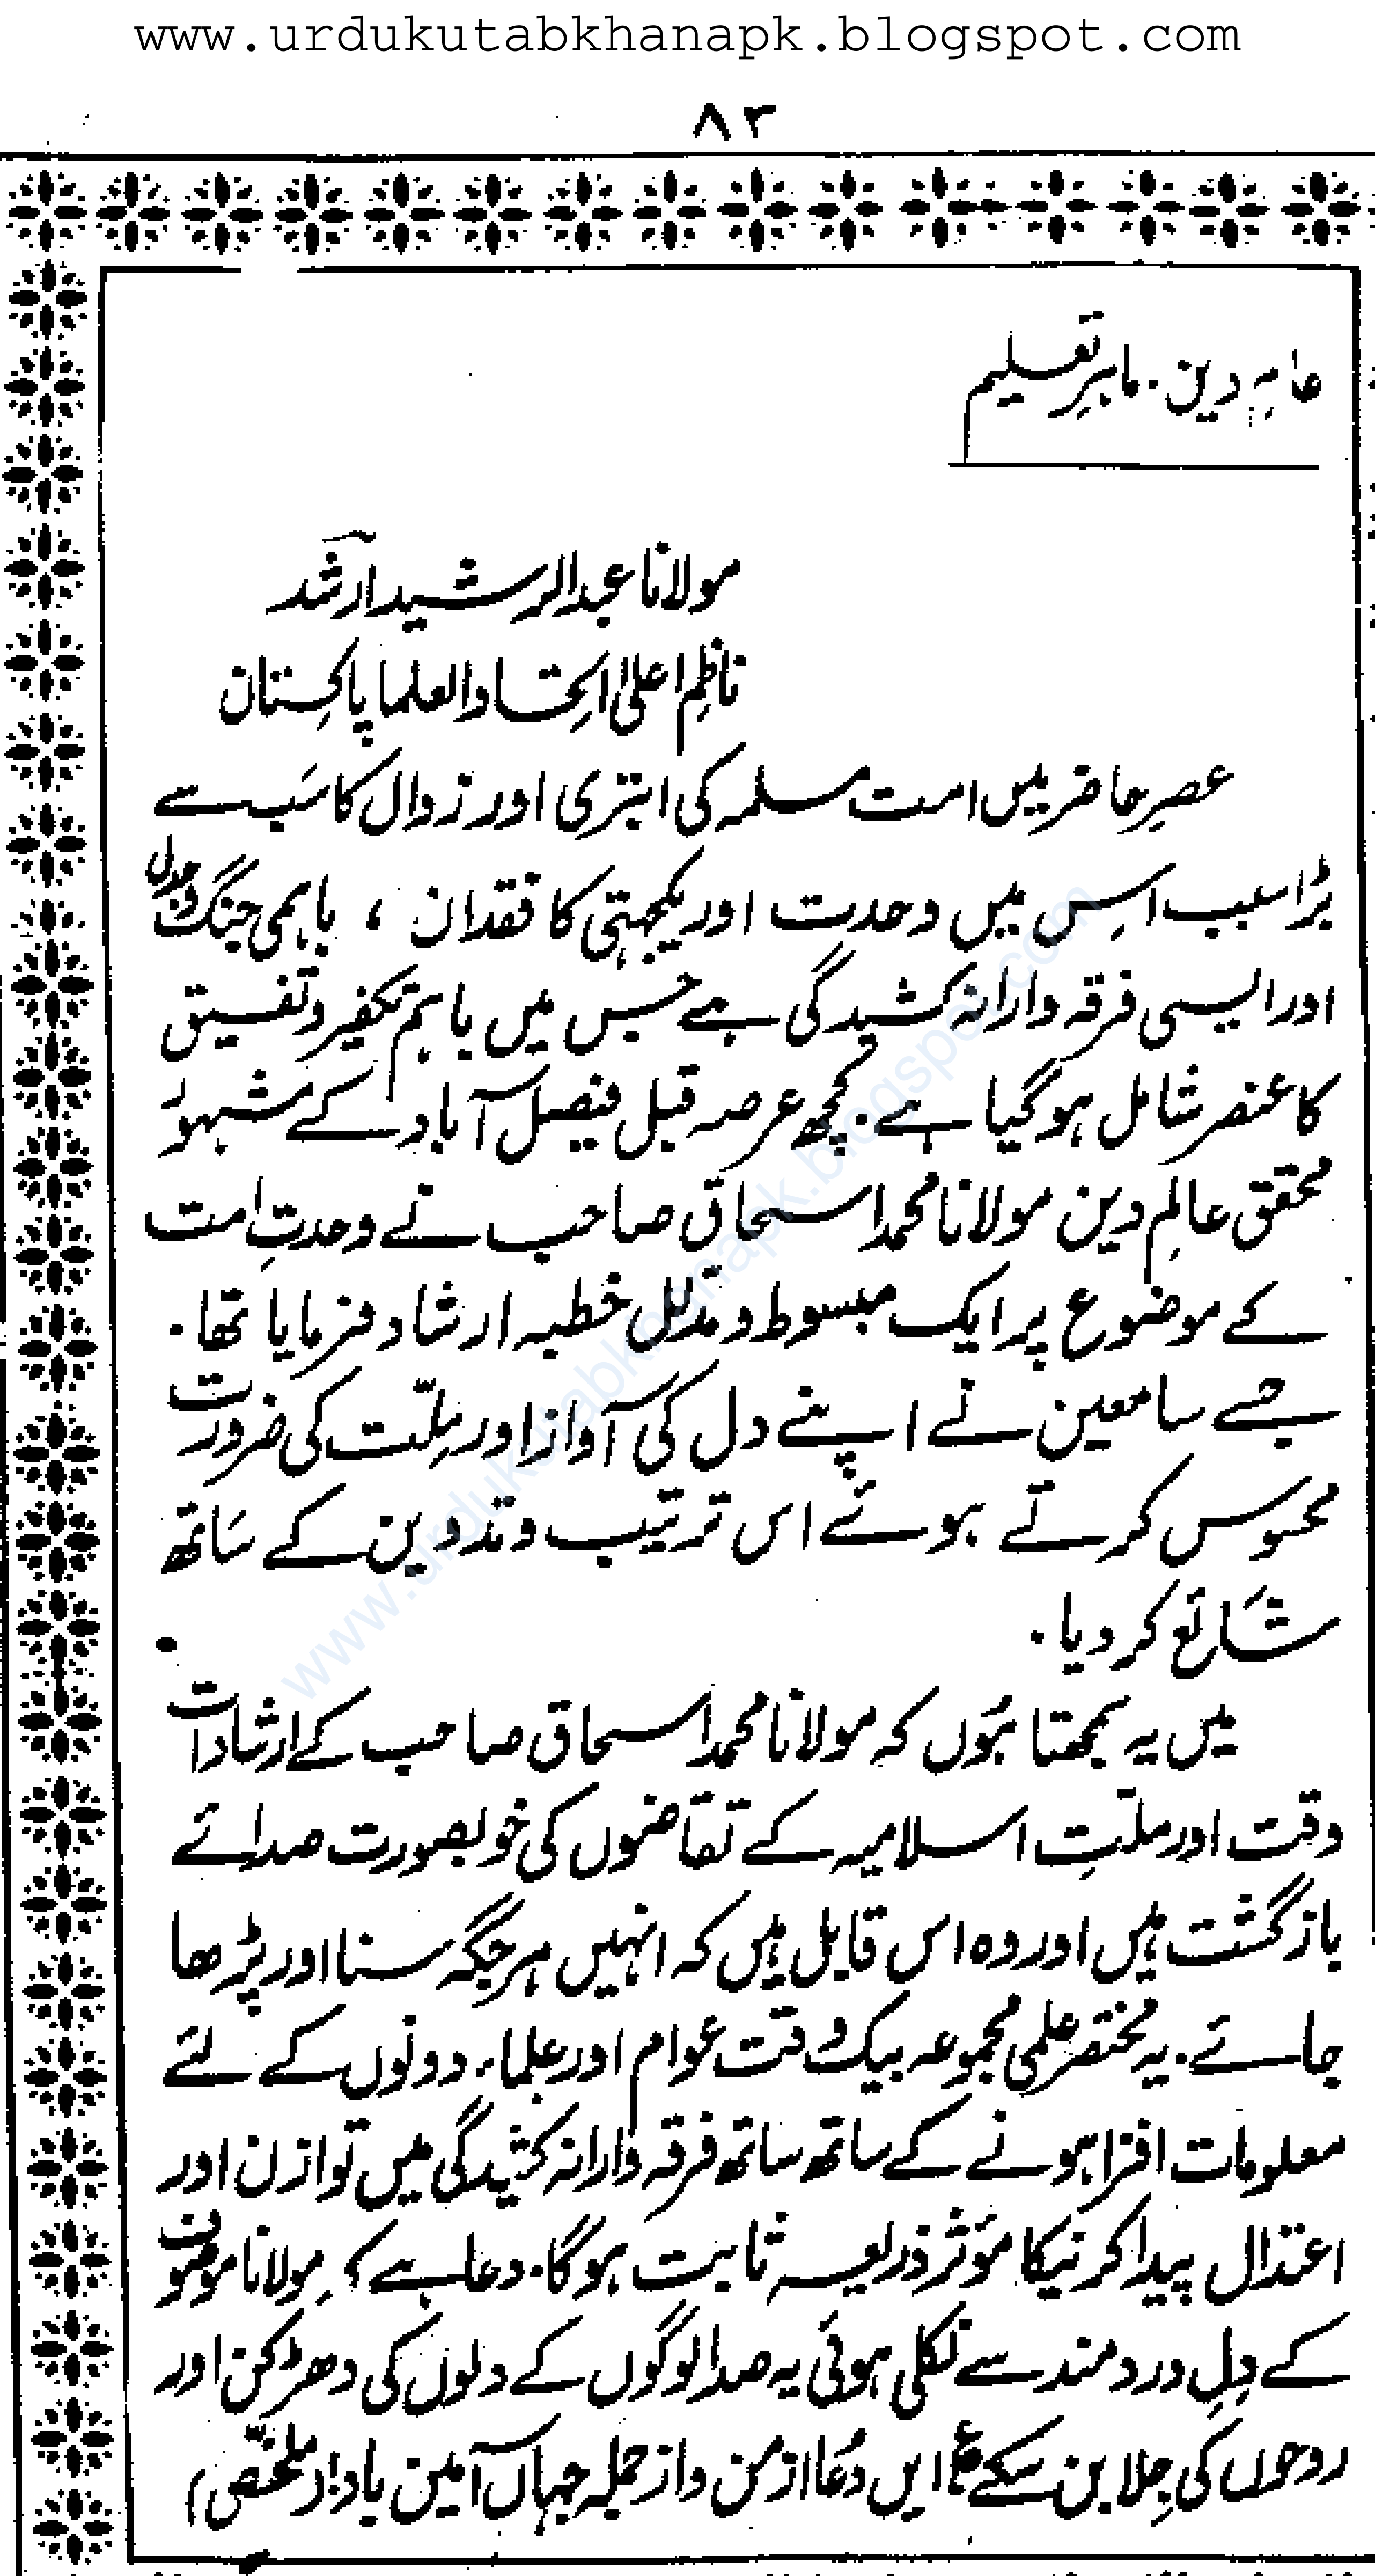 www.urdukutabkhanapk.blogspot.com
۸۳
عالمِ دین . ماہرِ تعلیم
مولانا عبدالرشید ارشد
ناظمِ اعلیٰ اتحاد العلما پاکستان
عصرِ حاضر میں امت مسلمہ کی ابتری اور زوال کا سَب سے
بڑا سبب اس میں وحدت اور یکجہتی کا فقدان ، باہمی جنگ و جدل
اور ایسی فرقہ وارانہ کشیدگی ہے جس میں باہم تکفیر و تفسیق
کا عنصر شامل ہو گیا ہے . کچھ عرصہ قبل فیصل آباد کے مشہور
محقق عالمِ دین مولانا محمد اسحاق صاحب نے وحدتِ امت
کے موضوع پر ایک مبسوط و مدّلل خطبہ ارشاد فرمایا تھا .
جسے سامعین نے اپنے دل کی آواز اور مِلّت کی ضرورت
محسوس کرتے ہوئے اس ترتیب و تدوین کے سَاتھ
شَائع کر دیا .
میں یہ سمجھتا ہُوں کہ مولانا محمد اسحاق صاحب کے ارشادات
وقت اور ملّتِ اسلامیہ کے تقاضوں کی خوبصورت صدائے
بازگشت ہیں اور وہ اس قابل ہیں کہ انہیں ہر جگہ سنا اور پڑھا
جائے . یہ مختصر علمی مجموعہ بیک وقت عوام اور علماء دونوں کے لئے
معلومات افزا ہونے کے ساتھ ساتھ فرقہ وارانہ کشیدگی میں توازن اور
اعتدال پیدا کرنیکا مؤثر ذریعہ ثابت ہو گا . دعا ہے کہ مولانا موصوف
کے دِلِ درد مند سے نکلی ہوئی یہ صدا لوگوں کے دلوں کی دھڑکن اور
روحوں کی جِلا بن سکے ؏ ایں دُعا از من و از جملہ جہاں آمین باد! (ملخصّ)
www.urdukutabkhanapk.blogspot.com